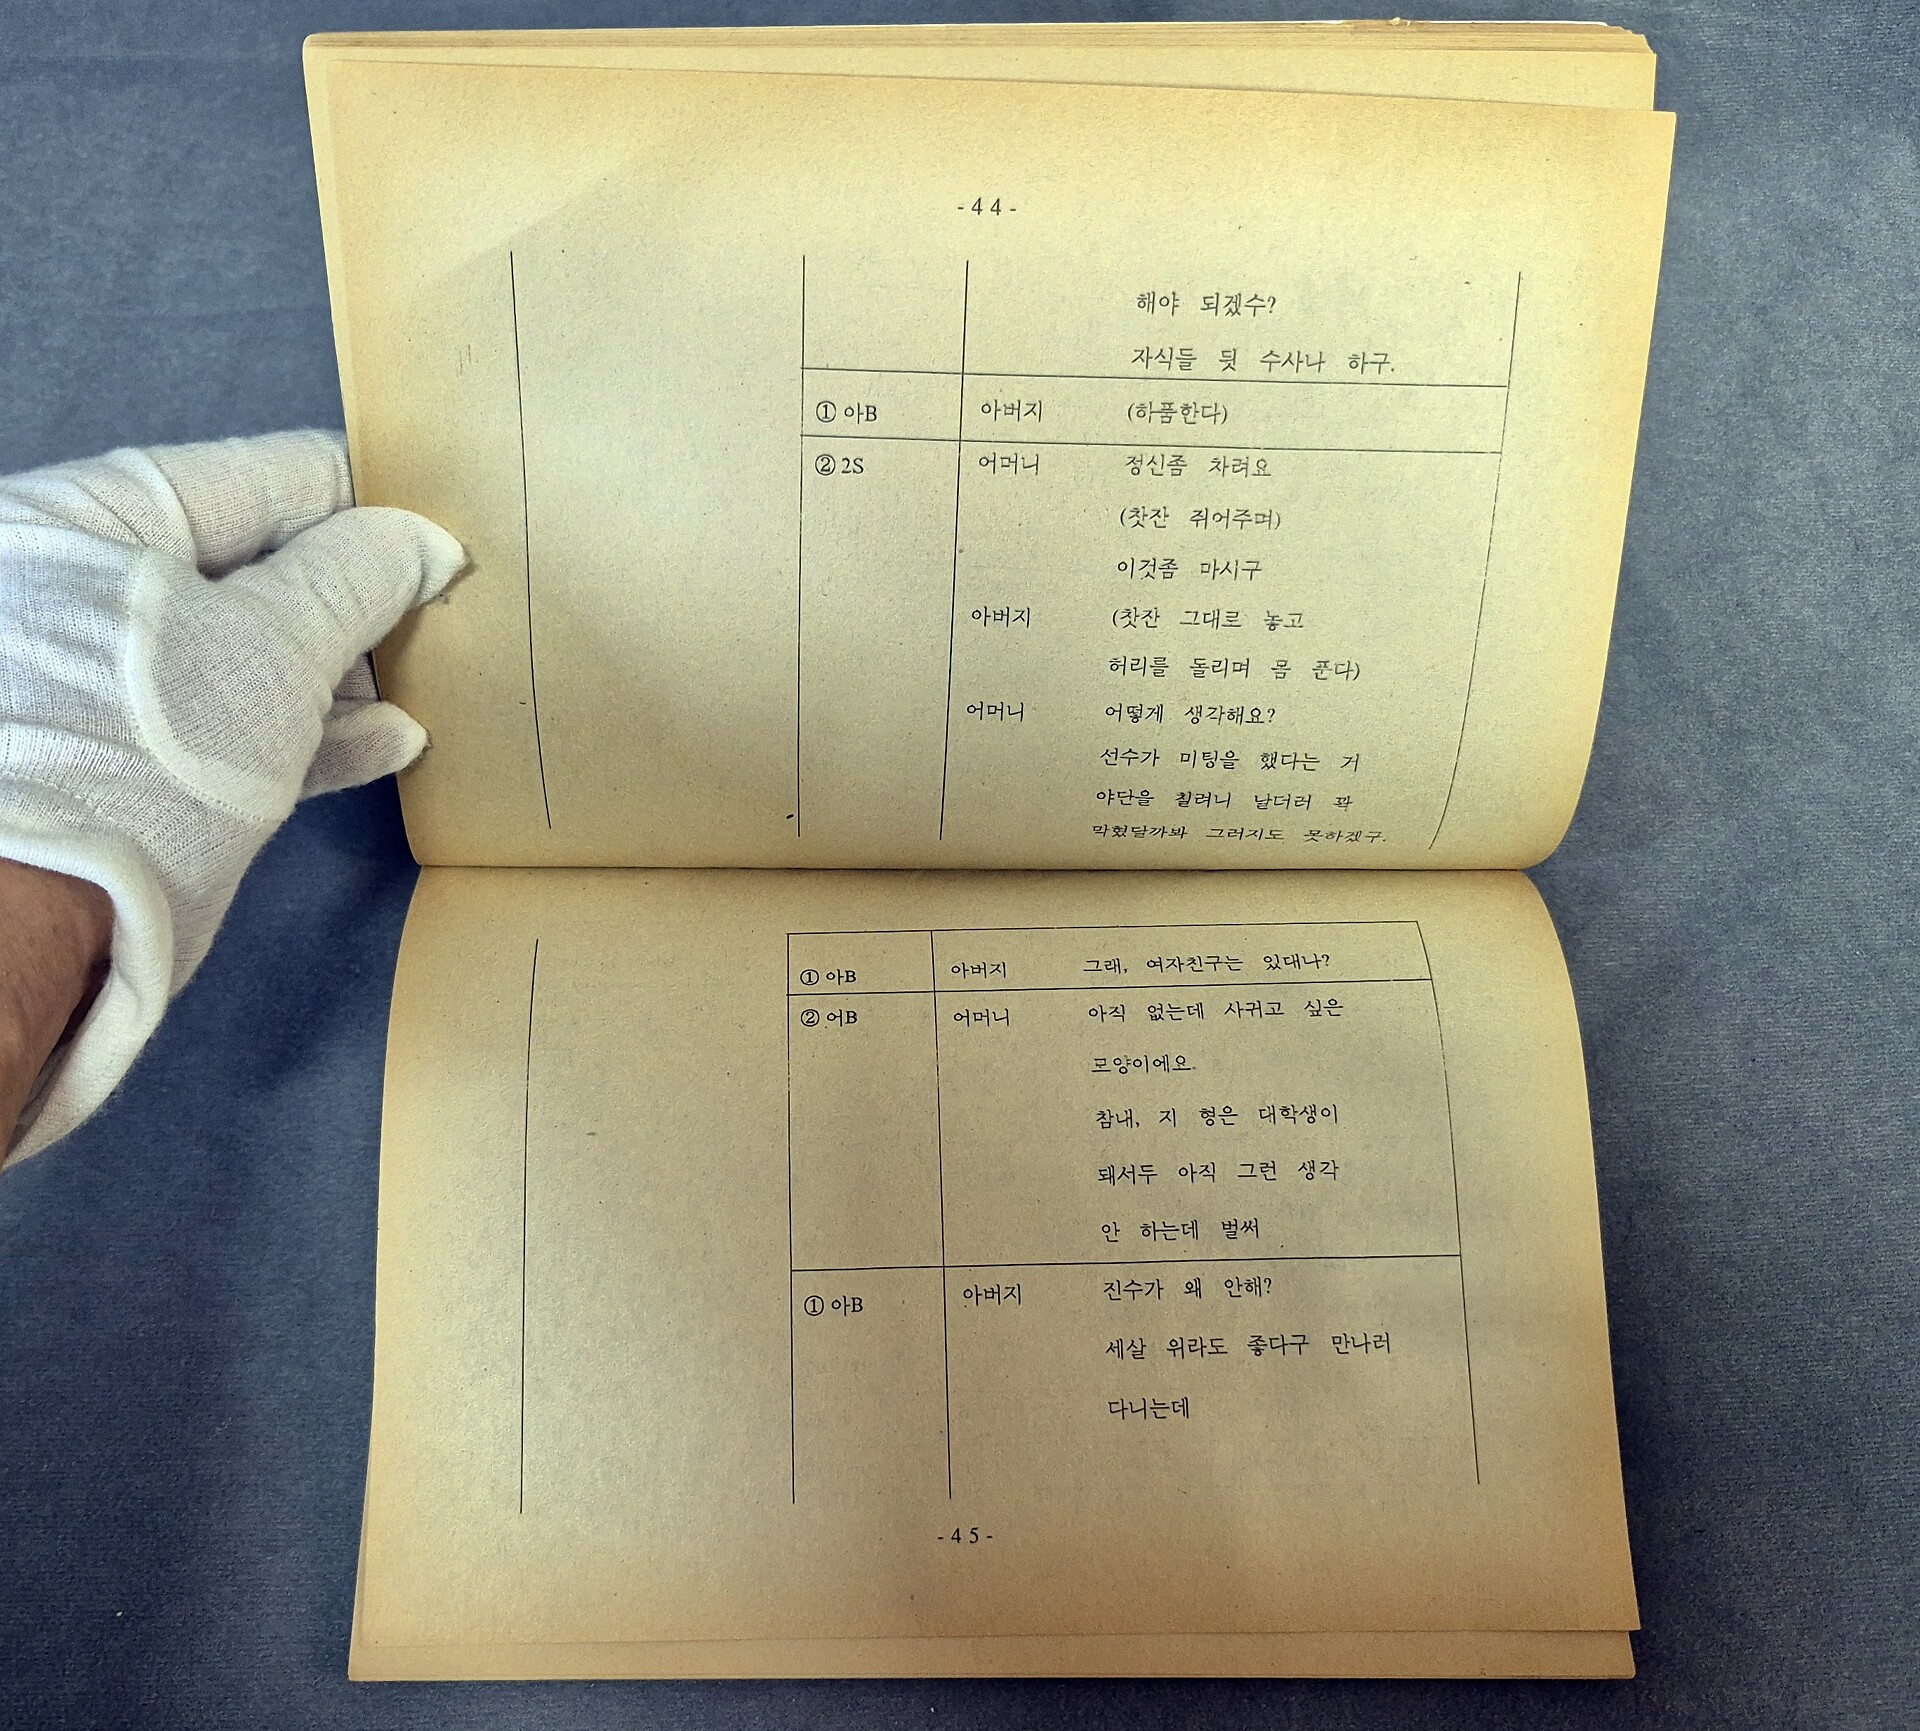 -44-
해야 되겠수?
자식들 뒷 수사나 하구.
① 아B 아버지 (하품한다)
② 2S 어머니 정신좀 차려요
(찻잔 쥐어주며)
이것좀 마시구
아버지 (찻잔 그대로 놓고
허리를 돌리며 몸 푼다)
어머니 어떻게 생각해요?
선수가 미팅을 했다는 거
야단을 칠려니 날더러 꽉
막혔달까봐 그러지도 못하겠구.
① 아B 아버지 그래, 여자친구는 있대나?
② 어B 어머니 아직 없는데 사귀고 싶은
모양이에요.
참내, 지 형은 대학생이
돼서두 아직 그런 생각
안 하는데 벌써
① 아B 아버지 진수가 왜 안해?
세살 위라도 좋다구 만나러
다니는데
-45-